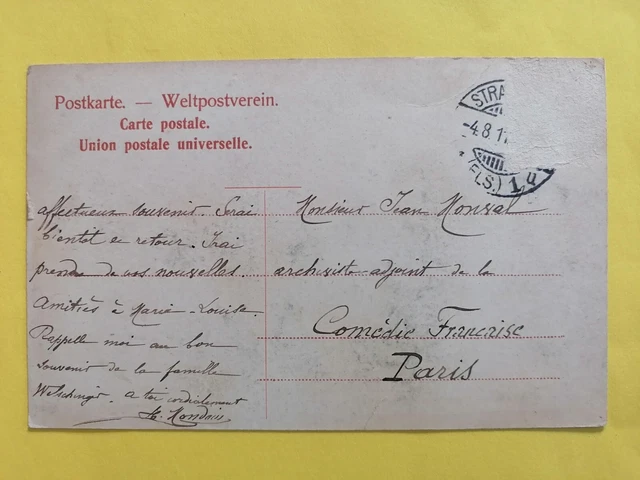 Postkarte. — Weltpostverein.
Carte postale.
Union postale universelle.
STRA
-4.8.1
(ELS.) 1.4
affectueux souvenir. Serai
bientôt de retour. Irai
prendre de vos nouvelles.
Amitiés à Marie-Louise.
Rappelle moi au bon
souvenir de la famille
Welschinger. A toi cordialement
Monsieur Jean Monval
archiviste adjoint de la
Comédie Française
Paris